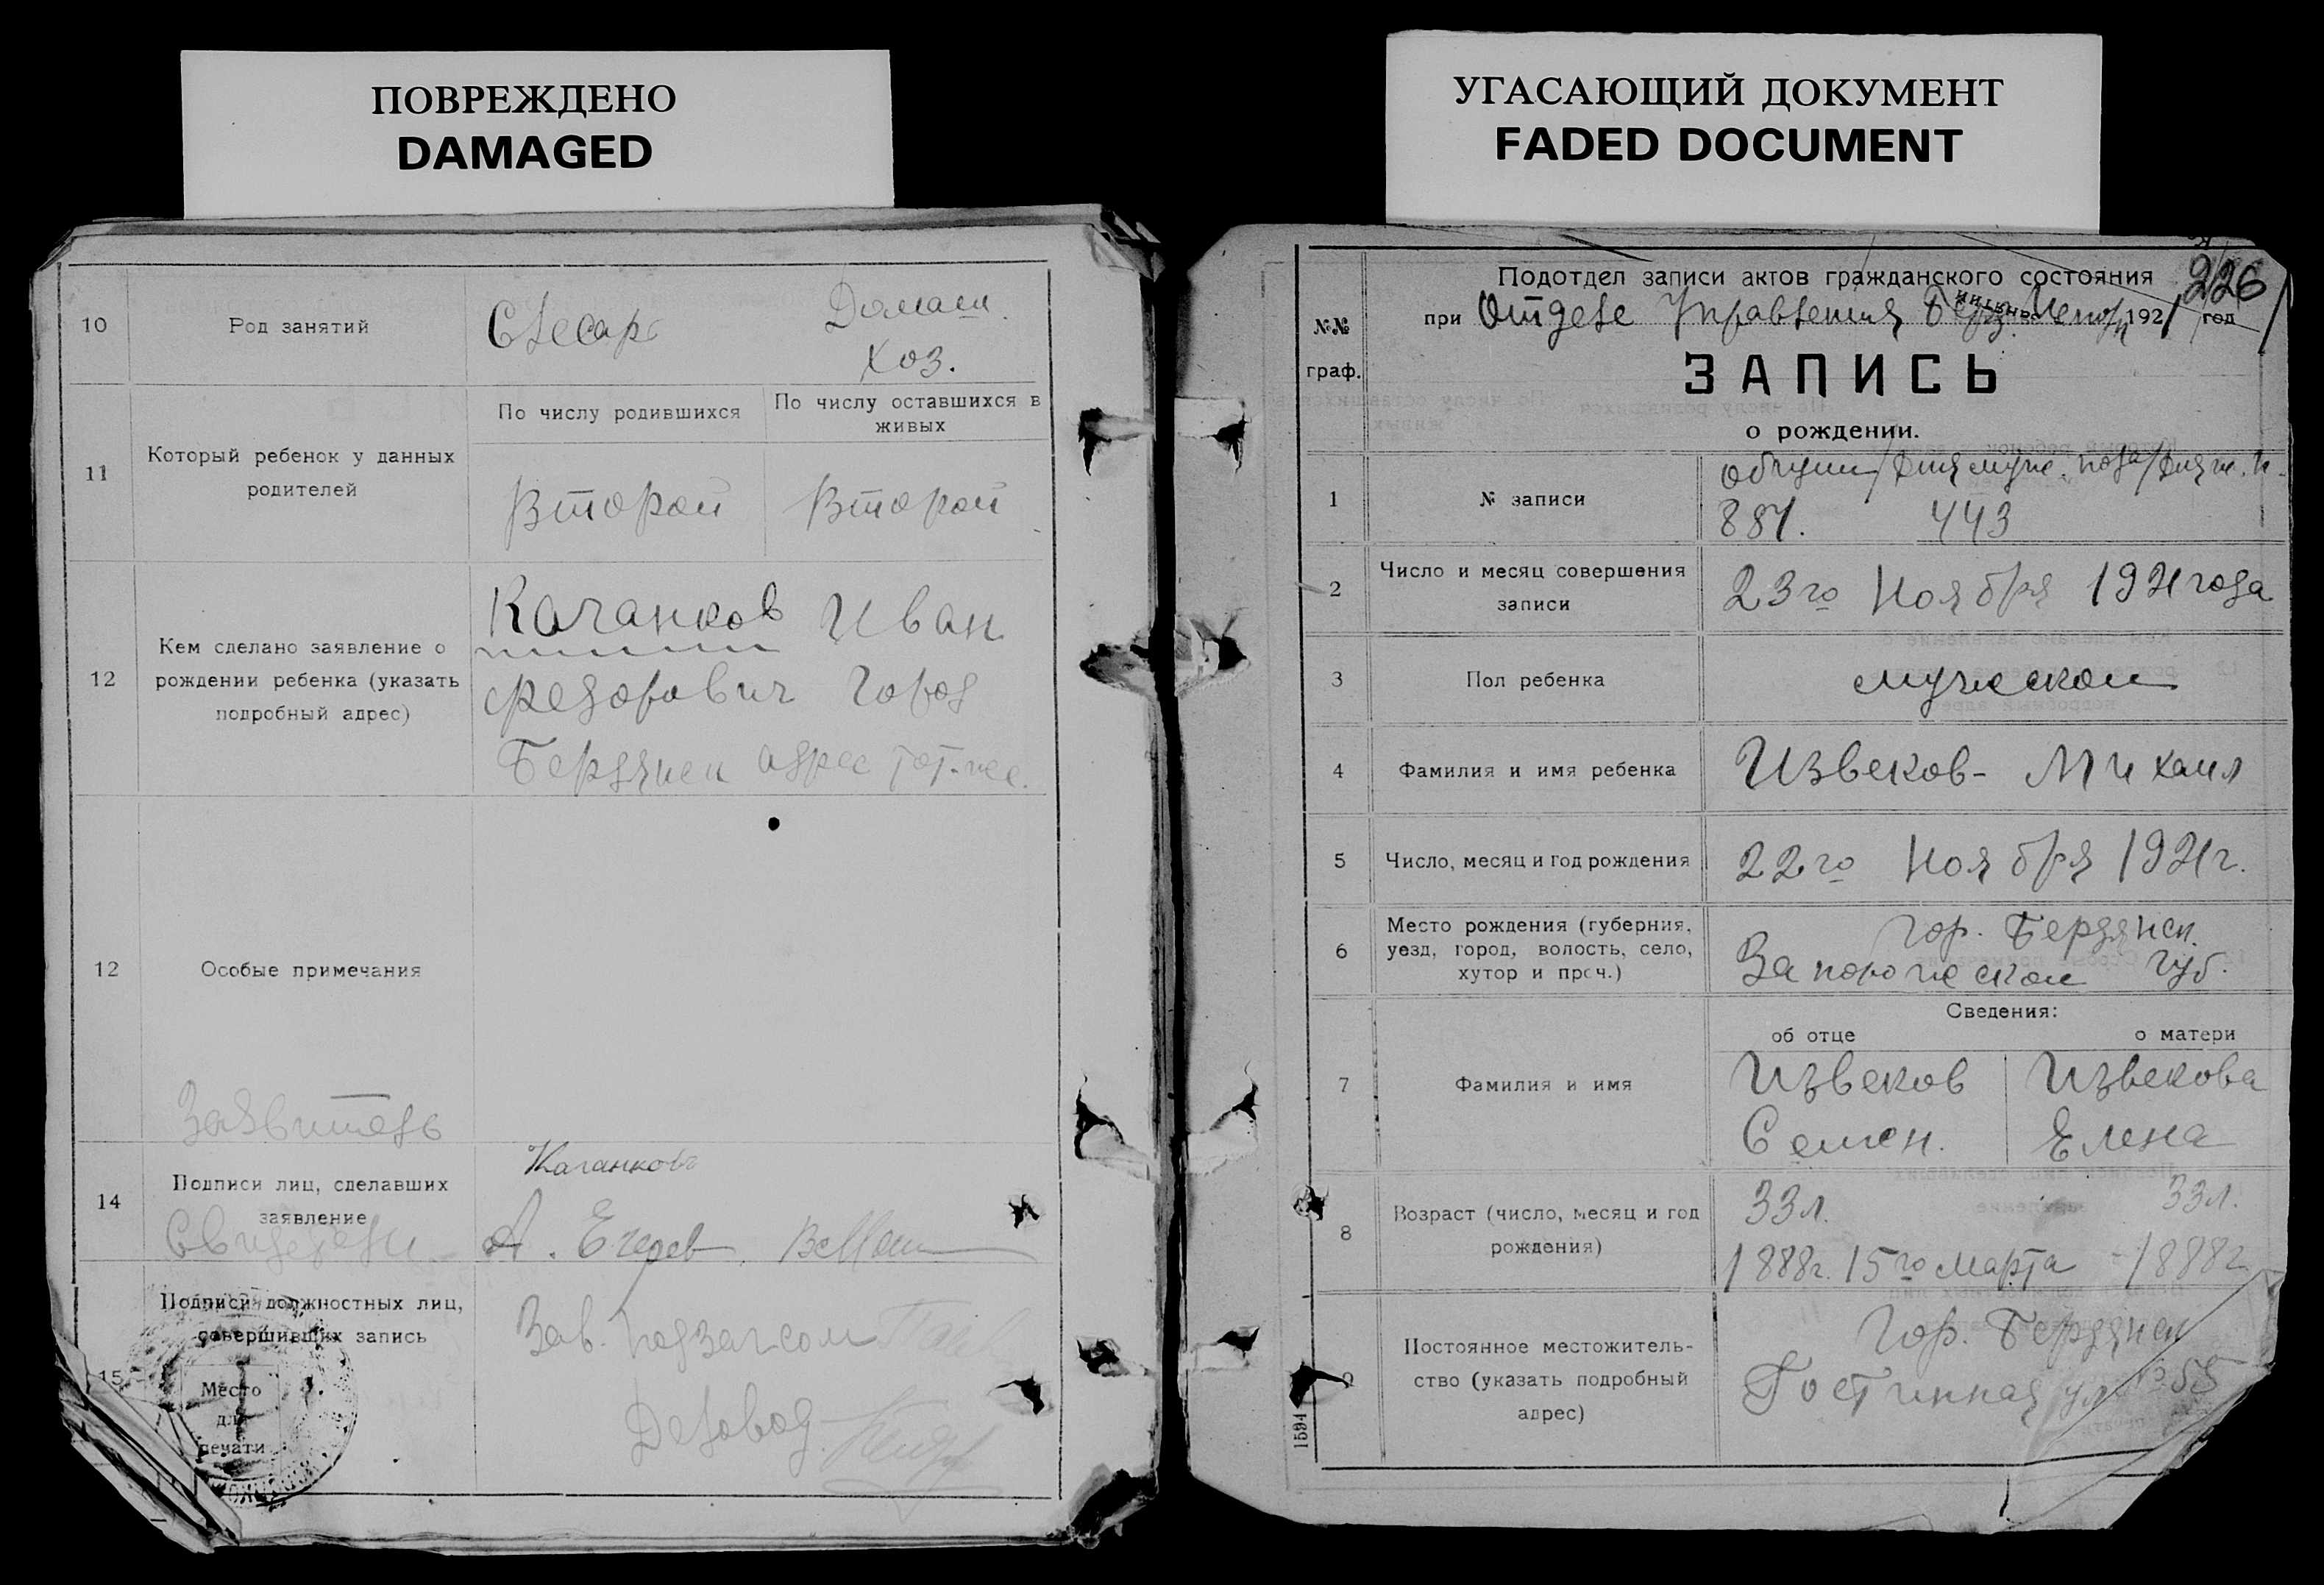 ПОВРЕЖДЕНО
DAMAGED
10
Род занятий
Слесарь
Домашн.
хоз.
11
Который ребенок у данных
родителей
По числу родившихся
По числу оставшихся в
живых
Второй
Второй
12
Кем сделано заявление о
рождении ребенка (указать
подробный адрес)
Качанков Иван
Федорович город
Бердянск адрес тот-же.
12
Особые примечания
Заявитель
14
Подписи лиц, сделавших
заявление
Свидетели
Качанковъ
А.
15
Подписи должностных лиц,
совершивших запись
Место
для
печати
Зав. подзагсом
Деловод
УГАСАЮЩИЙ ДОКУМЕНТ
FADED DOCUMENT
226
№№
граф.
Подотдел записи актов гражданского состояния
при Отделе Управления 1921 год
ЗАПИСЬ
о рождении.
1
№ записи
общий/для муж. пола/для ж. п.
887. 443
2
Число и месяц совершения
записи
23го Ноября 1921 года
3
Пол ребенка
мужской
4
Фамилия и имя ребенка
Извеков- Михаил
5
Число, месяц и год рождения
22го Ноября 1921г.
6
Место рождения (губерния,
уезд, город, волость, село,
хутор и проч.)
Гор. Бердянск.
Запорожской Губ.
Сведения:
об отце
о матери
7
Фамилия и имя
Извеков
Семен.
Извекова
Елена
8
Возраст (число, месяц и год
рождения)
33л.
1888г. 15го марта
33л.
1888г.
9
Постоянное местожитель-
ство (указать подробный
адрес)
Гор. Бердянск
Гостинная ул № 55
1594